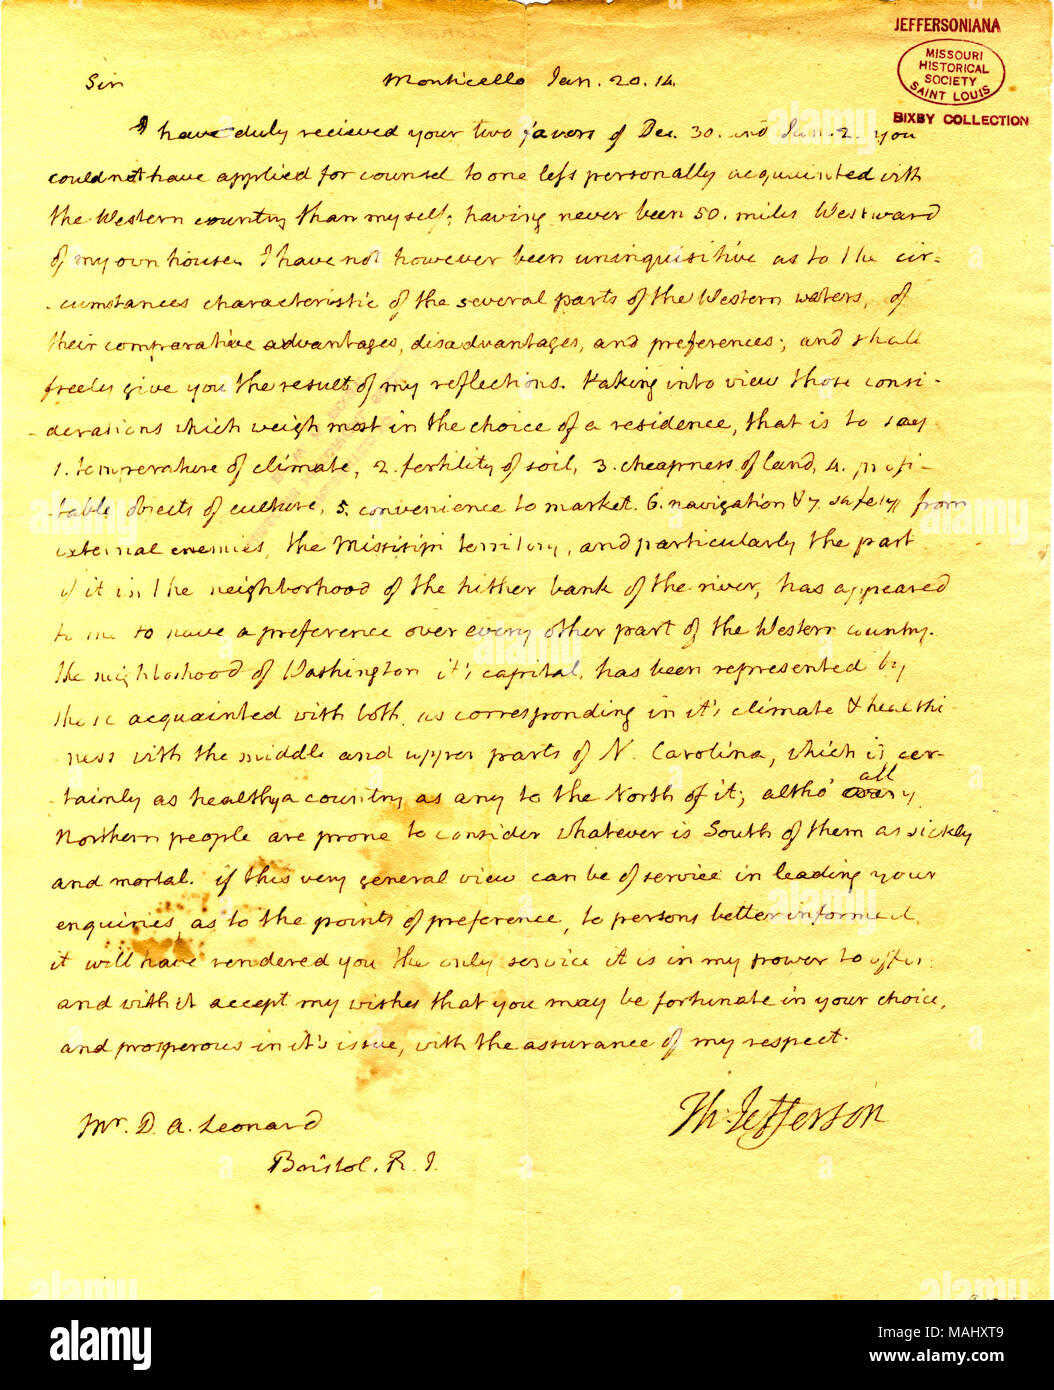 JEFFERSONIANA
MISSOURI
HISTORICAL
SOCIETY
SAINT LOUIS
BIXBY COLLECTION
Sir Monticello Jan. 20. 14.
I have duly recieved your two favors of Dec. 30. and Jan. 2. you
could not have applied for counsel to one less personally acquainted with
the Western country than myself; having never been 50. miles Westward
of my own house. I have not however been uninquisitive as to the cir-
-cumstances characteristic of the several parts of the Western waters, of
their comparative advantages, disadvantages, and preferences; and shall
freely give you the result of my reflections. taking into view those consi-
-derations which weigh most in the choice of a residence, that is to say
1. temperature of climate, 2. fertility of soil, 3. cheapness of land, 4. profi-
-table objects of culture, 5. convenience to market. 6. navigation & 7. safety from
external enemies, the Missisipi territory, and particularly the part
of it in the neighborhood of the hither bank of the river, has appeared
to me to have a preference over every other part of the Western country.
the neighborhood of Washington it's capital, has been represented by
those acquainted with both, as corresponding in it's climate & healthi-
ness with the middle and upper parts of N. Carolina, which is cer-
-tainly as healthy a country as any to the North of it; altho' all
Northern people are prone to consider whatever is South of them as sickly
and mortal. if this very general view can be of service in leading your
enquiries, as to the points of preference, to persons better informed,
it will have rendered you the only service it is in my power to offer.
and with it accept my wishes that you may be fortunate in your choice,
and prosperous in it's issue, with the assurance of my respect.
Th: Jefferson
Mr. D. A. Leonard
Bristol. R. I.
alamy
Image ID: MAHXT9
www.alamy.com